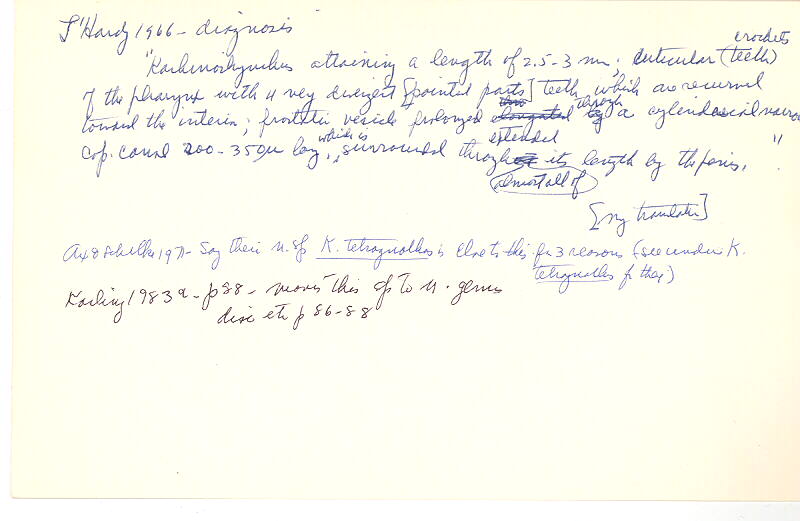 L'Hardy 1966 - diagnosis
crochets
"Karkinorhynchus attaining a length of 2.5-3 mm; cuticular (teeth)
of the pharynx with 4 very divergent [pointed parts] teeth, which are recurved
toward the interior; prostatic vesicle prolonged elongated by through a cylindrical narrow
extended
cop. canal 200-350µ long, which is surrounded throughout its length by the penis. "
almost all of
[my translation]
Ax & Schilke 1971 - Say their n. sp K. tetragnathus is close to this for 3 reasons (see under K.
tetragnathus for they)
Karling 1983a - p88 - moves this sp to n. genus
disc etc p 86-88